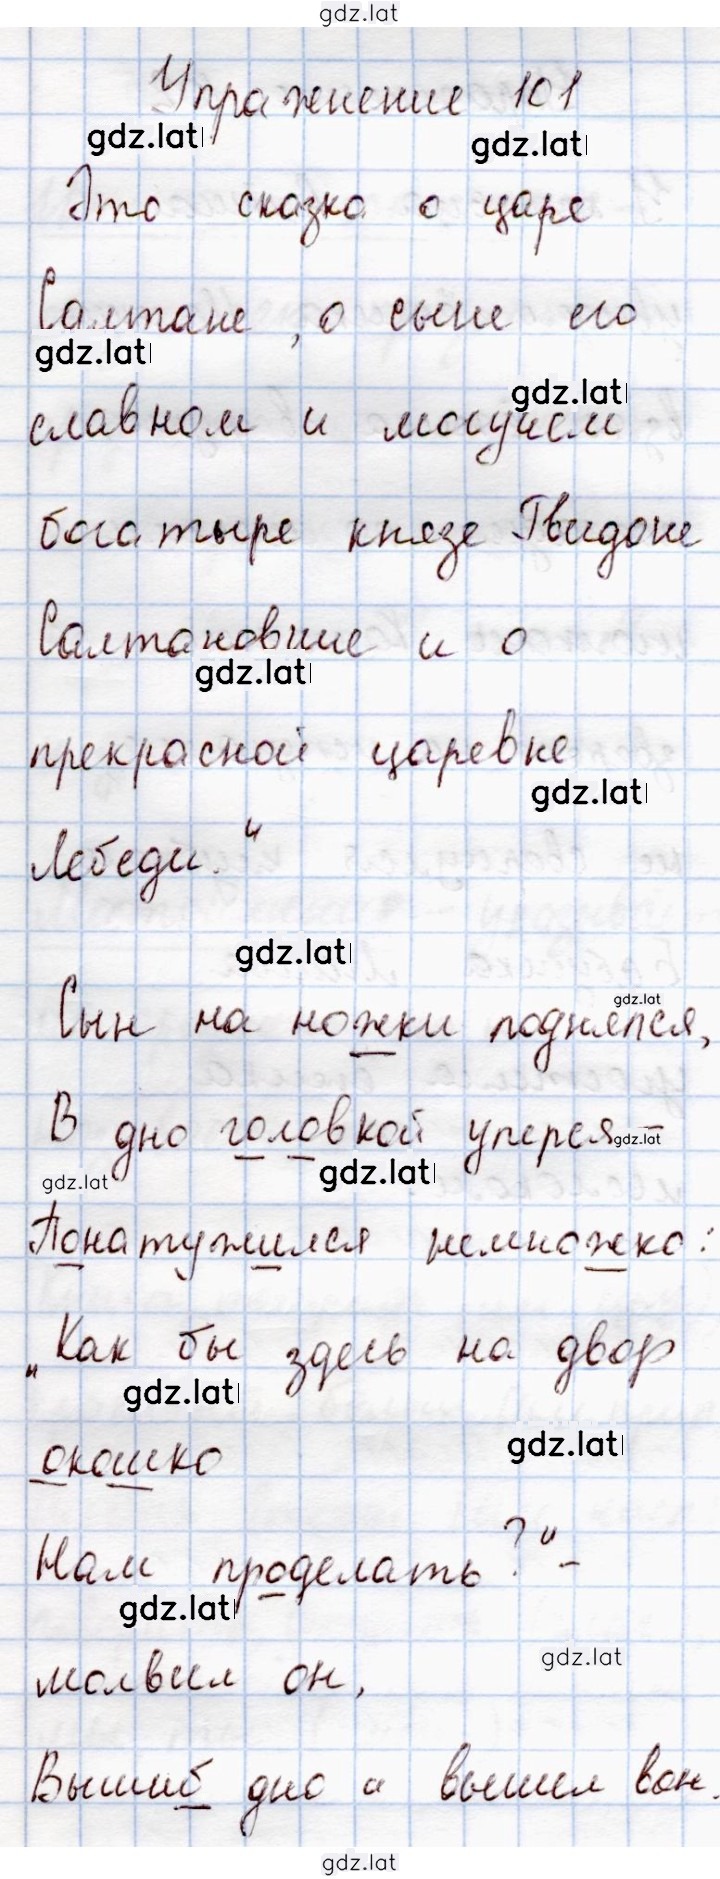 gdz.lat
Упражнение 101
gdz.lat
gdz.lat
Это сказка о царе
Салтане, о сыне его
gdz.lat
gdz.lat
славном и могучем
богатыре князе Гвидоне
Салтановиче и о
gdz.lat
прекрасной царевне
gdz.lat
Лебеди."
gdz.lat
gdz.lat
Сын на ножки поднялся,
В дно головкой уперся –
gdz.lat
gdz.lat
gdz.lat
Понатужился немножко:
„Как бы здесь на двор
gdz.lat
gdz.lat
окошко
Нам проделать?" –
gdz.lat
gdz.lat
молвил он,
Вышиб дно и вышел вон.
gdz.lat